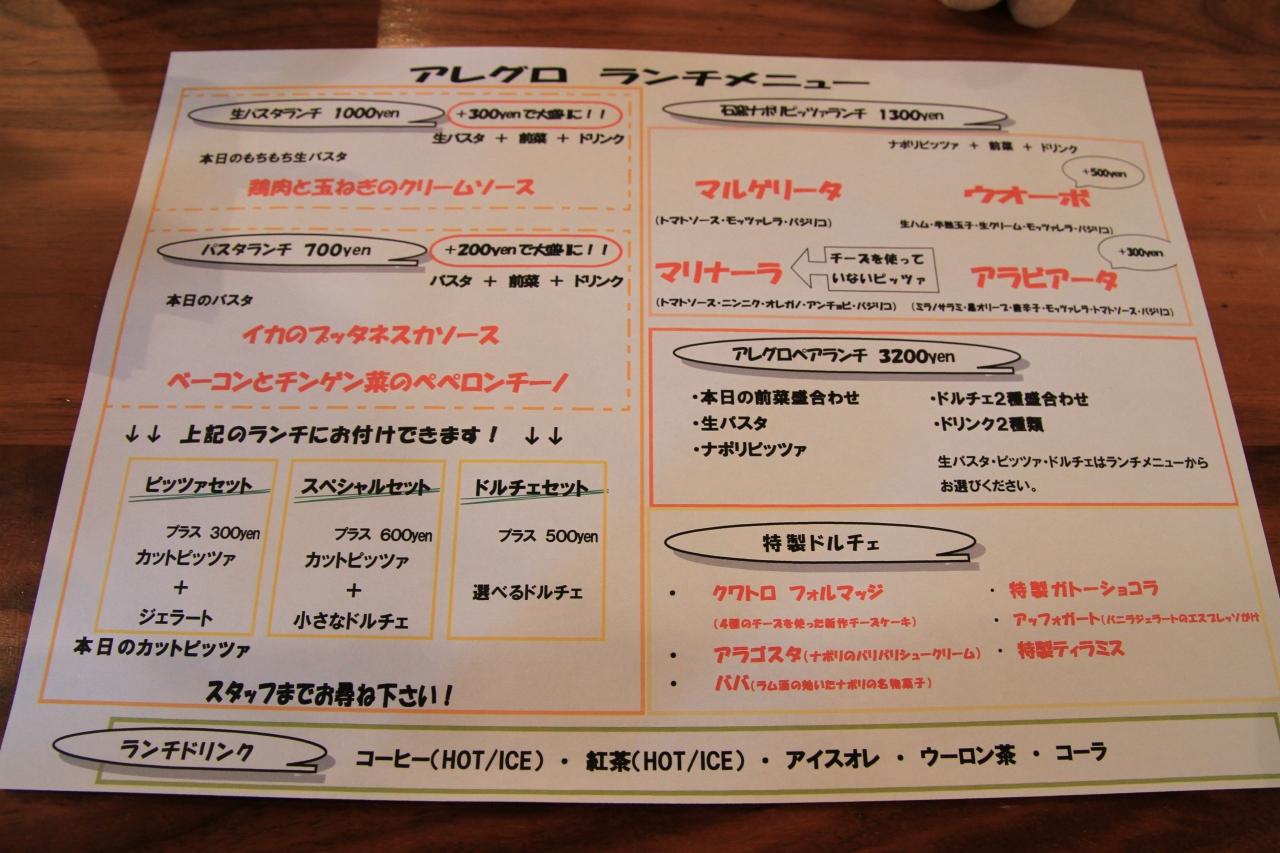 アレグロ ランチメニュー
生パスタランチ 1000yen
+300yenで大盛に!!
生パスタ + 前菜 + ドリンク
本日のもちもち生パスタ
鶏肉と玉ねぎのクリームソース
パスタランチ 700yen
+200yenで大盛に!!
パスタ + 前菜 + ドリンク
本日のパスタ
イカのプッタネスカソース
ベーコンとチンゲン菜のペペロンチーノ
↓↓ 上記のランチにお付けできます! ↓↓
ピッツァセット
プラス 300yen
カットピッツァ
+
ジェラート
スペシャルセット
プラス 600yen
カットピッツァ
+
小さなドルチェ
ドルチェセット
プラス 500yen
選べるドルチェ
本日のカットピッツァ
スタッフまでお尋ね下さい!
石窯ナポリピッツァランチ 1300yen
ナポリピッツァ + 前菜 + ドリンク
マルゲリータ
(トマトソース・モッツァレラ・バジリコ)
+500yen
ウオーボ
生ハム・半熟玉子・生クリーム・モッツァレラ・バジリコ)
マリナーラ
チーズを使って
いないピッツァ
(トマトソース・ニンニク・オレガノ・アンチョビ・バジリコ)
+300yen
アラビアータ
(ミラノサラミ・黒オリーブ・唐辛子・モッツァレラ・トマトソース・バジリコ)
アレグロペアランチ 3200yen
・本日の前菜盛合わせ
・生パスタ
・ナポリピッツァ
・ドルチェ2種盛合わせ
・ドリンク2種類
生パスタ・ピッツァ・ドルチェはランチメニューから
お選びください。
特製ドルチェ
・ クワトロ フォルマッジ
(4種のチーズを使った新作チーズケーキ)
・ アラゴスタ(ナポリのパリパリシュークリーム)
・ ババ(ラム酒の効いたナポリの名物菓子)
・ 特製ガトーショコラ
・ アッフォガート(バニラジェラートのエスプレッソがけ
・ 特製ティラミス
ランチドリンク
コーヒー(HOT/ICE) ・ 紅茶(HOT/ICE) ・ アイスオレ ・ ウーロン茶 ・ コーラ